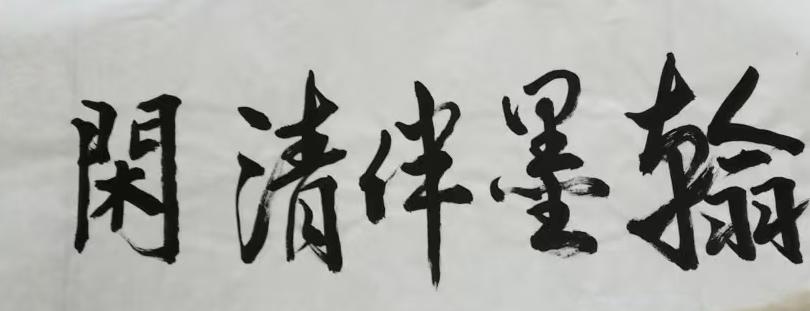 翰墨伴清閑